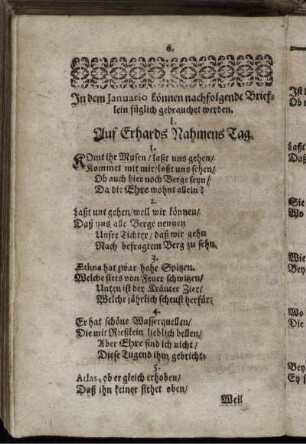 6.
In dem Januario können nachfolgende Brief-
lein füglich gebrauchet werden.
I.
Auf Erhards Nahmens Tag.
1.
KOmt ihr Musen/ lasst uns gehen/
Kommet mit mir/ lasst uns sehen/
Ob auch hier noch Berge seyn/
Da die Ehre wohnt allein?
2.
Lasst uns gehen/ weil wir können/
Daß uns alle Berge nennen
Unsre Tichter/ daß wir gehn
Nach befragtem Berg zu sehn.
3.
Æthna hat zwar hohe Spitzen.
Welche stets von Feuer schwitzen/
Unten ist der Kräuter Zier/
Welche jährlich scheust herfür;
4.
Er hat schöne Wasserquellen/
Die mit Rießlein lieblich bellen/
Aber Ehre find ich nicht/
Diese Tugend ihm gebricht.
5.
Atlas, ob er gleich erhoben/
Daß ihn keiner siehet oben/
Weil